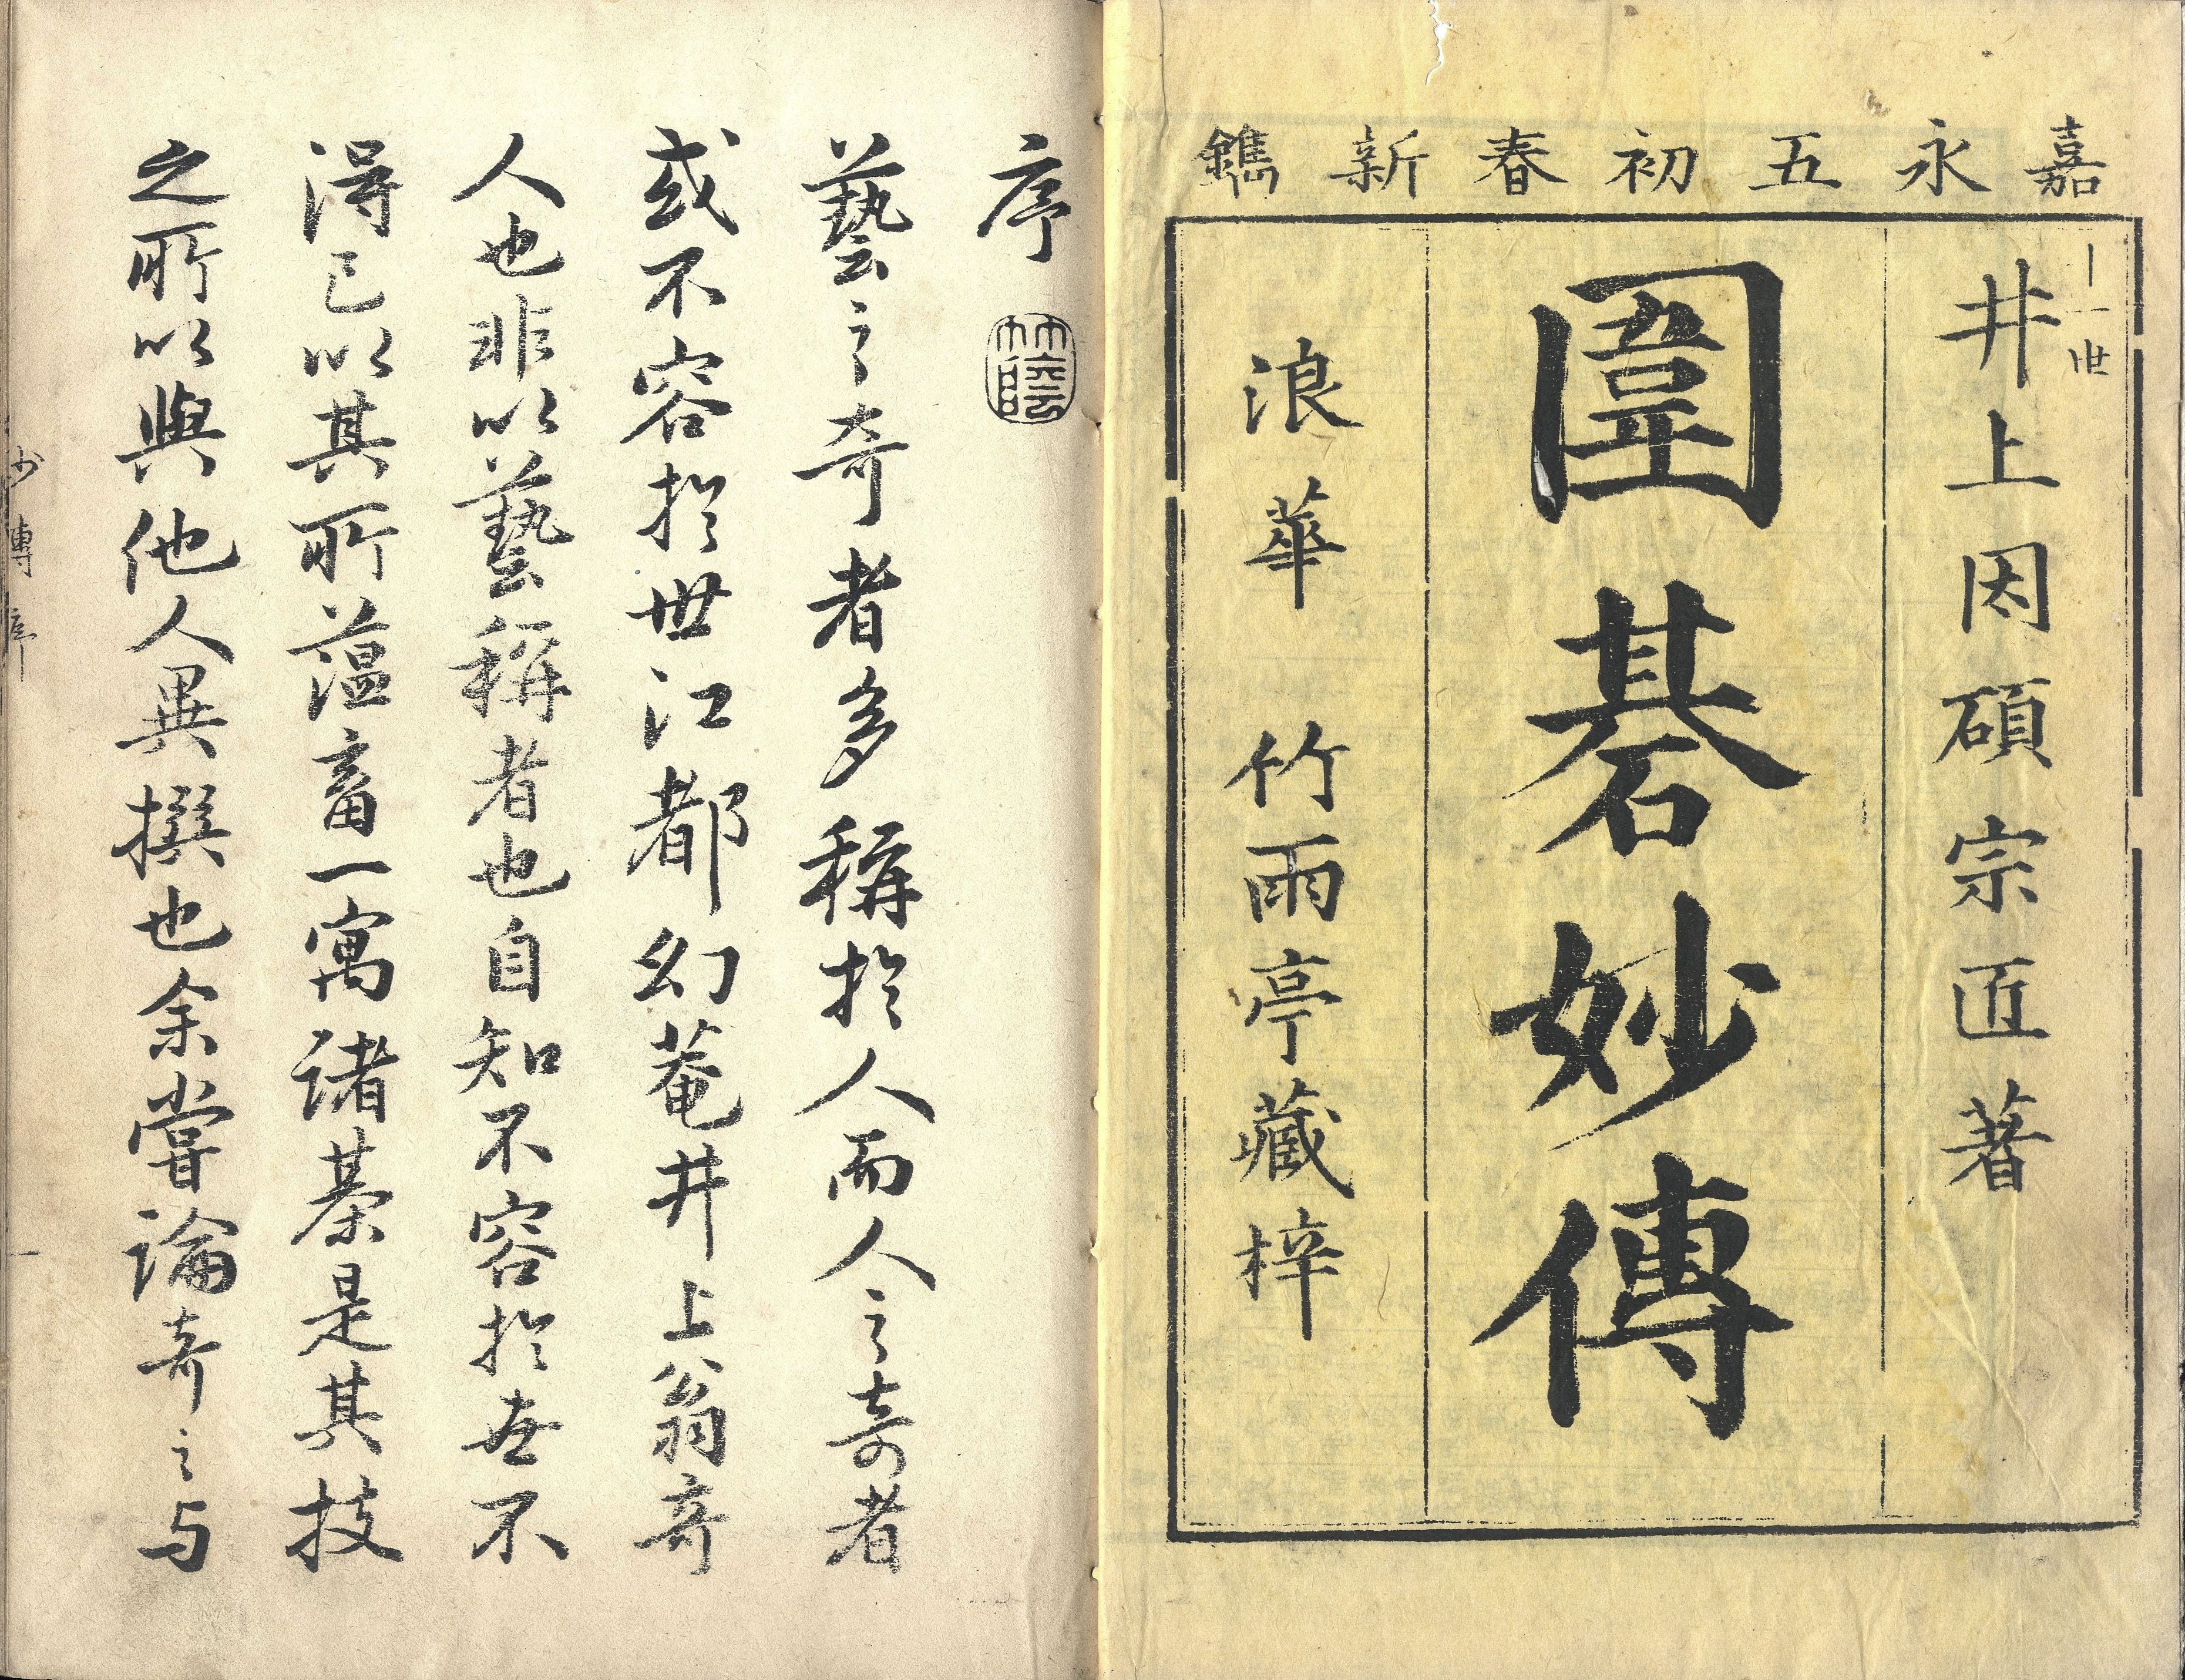 嘉永五初春新鐫
十一世
井上因碩宗匠著
圍碁妙傳
浪華 竹雨亭藏梓
序
藝之奇者多稱於人而人之奇者
或不容於世江都幻菴井上翁奇
人也非以藝稱者也自知不容於世不
得已以其所薀畜一寓諸棊是其技
之所以與他人異撰也余嘗論奇之与
妙傳序
一